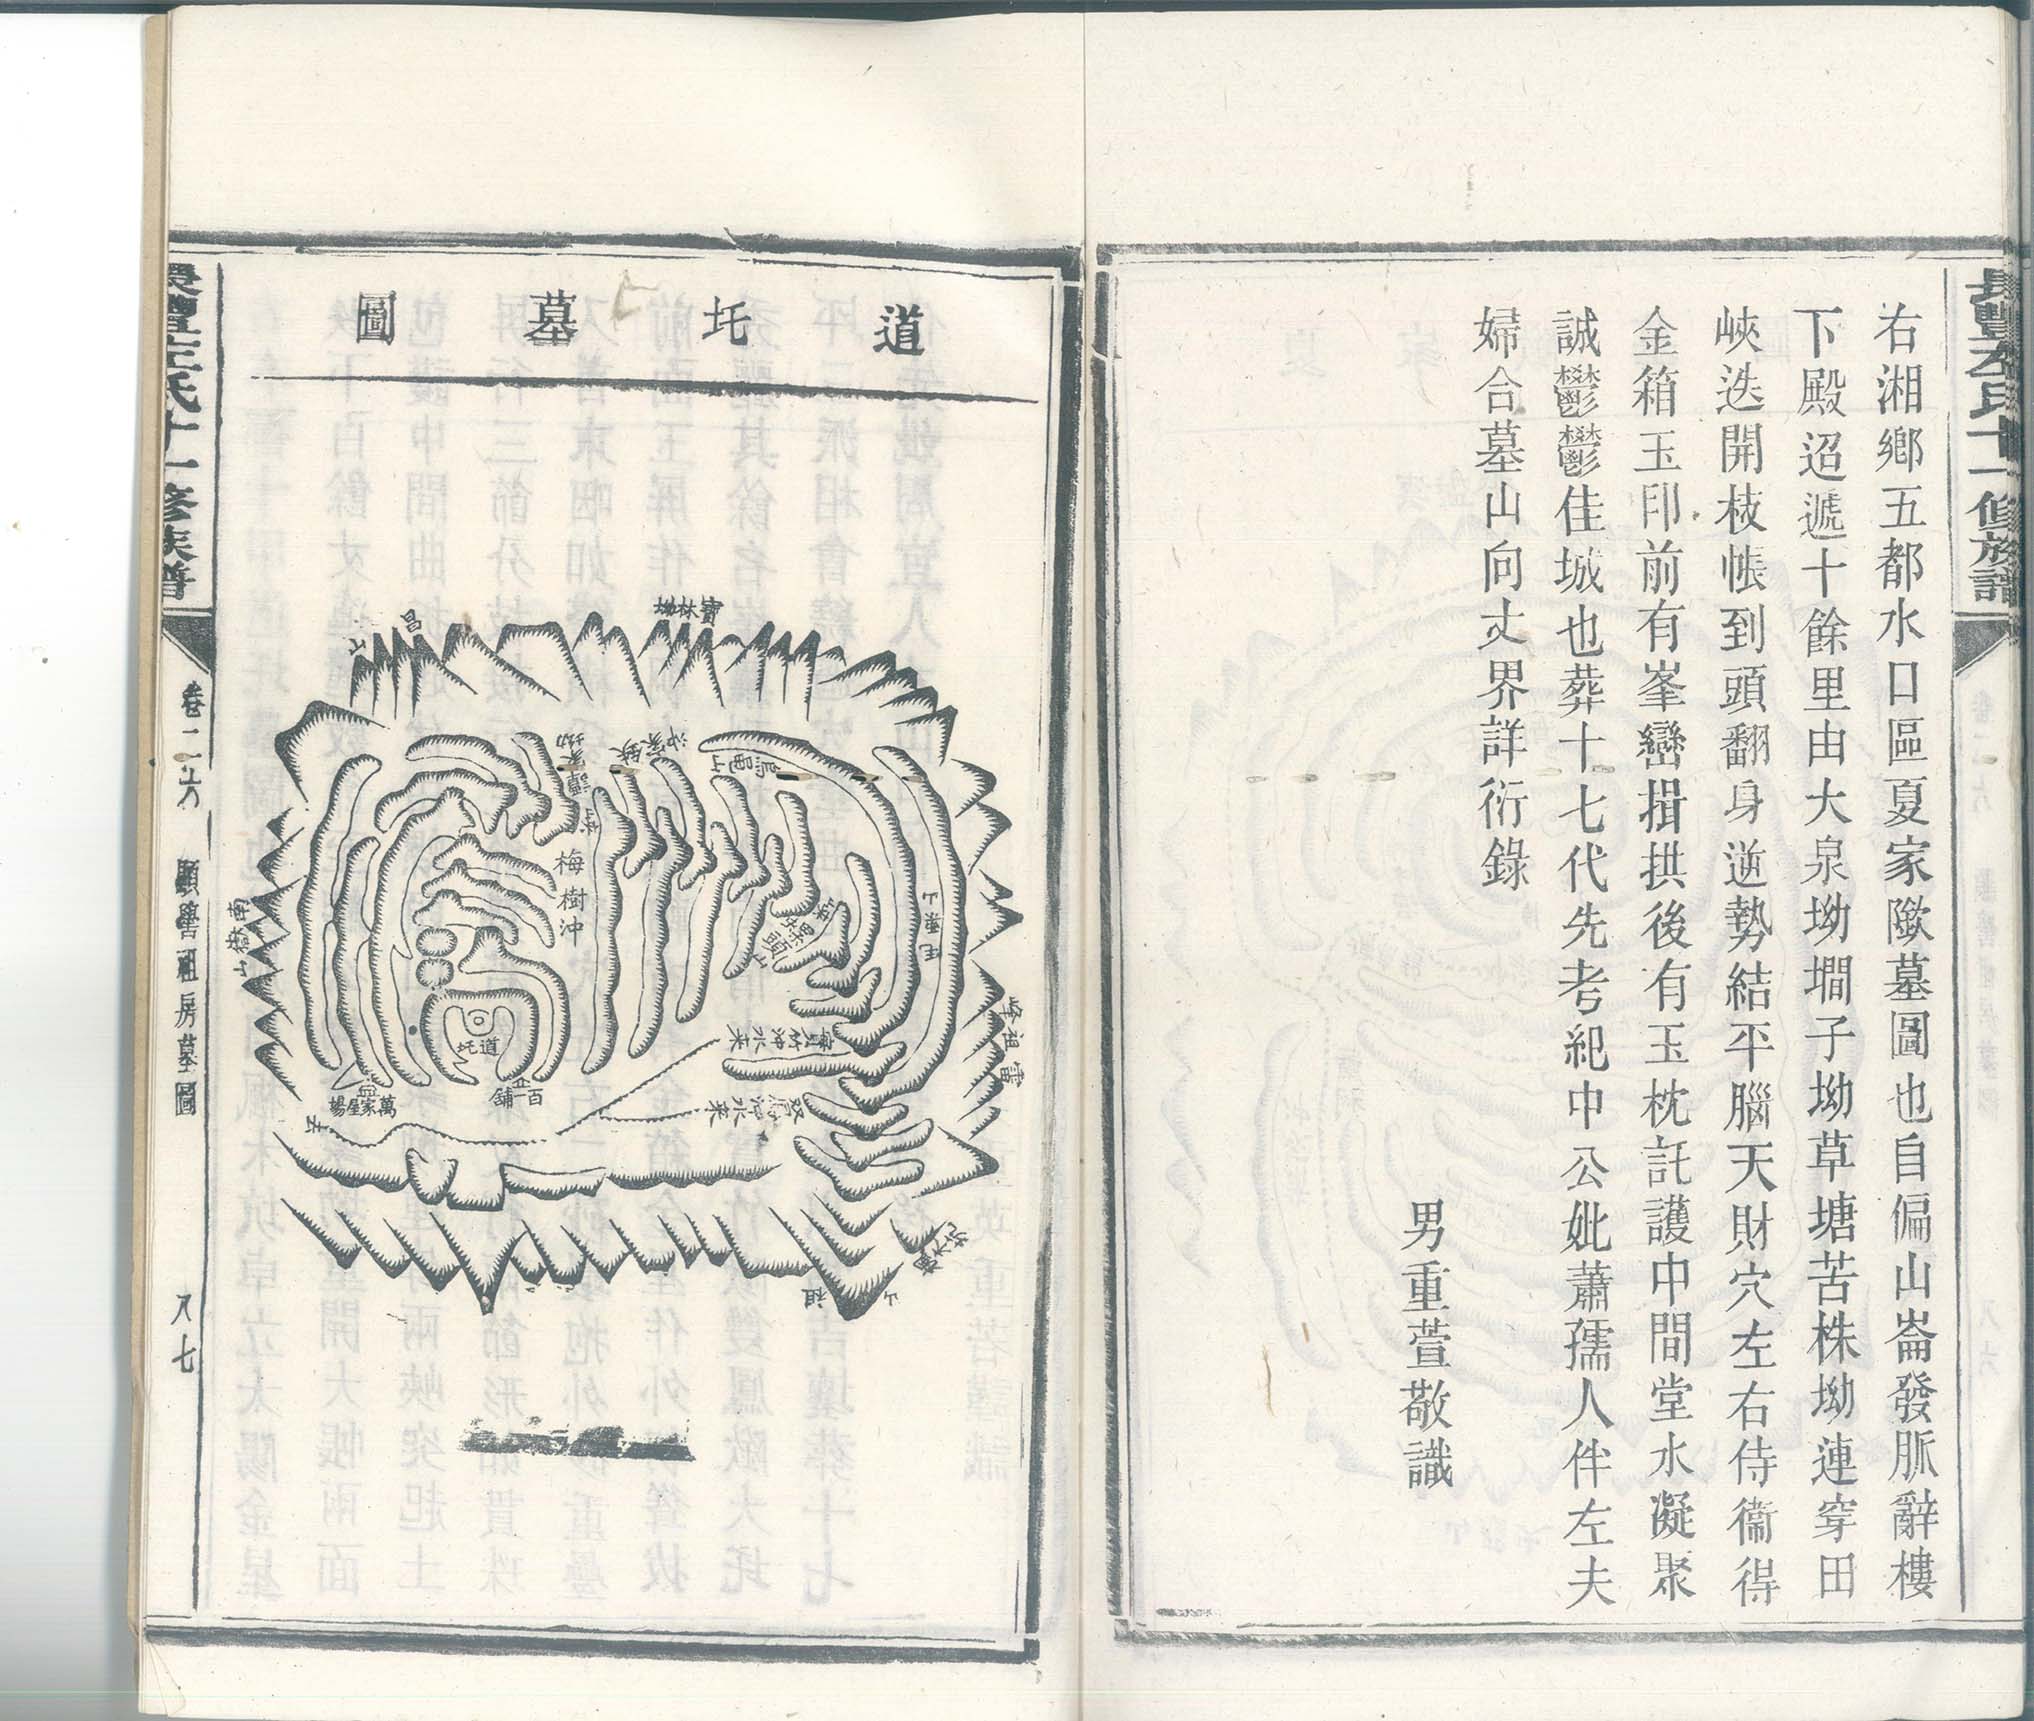 長豐左氏十一修族譜
右湘鄉五都水口區夏家歘墓圖也自偏山崙發脈辭樓
下殿迢遞十餘里由大泉坳墹子坳草塘苦株坳連穿田
峽迭開枝帳到頭翻身逆勢結平腦天財穴左右侍衞得
金箱玉印前有峯巒揖拱後有玉枕託護中間堂水凝聚
誠鬱鬱佳城也葬十七代先考紀中公妣蕭孺人伴左夫
婦合墓山向丈界詳衍錄
男重萱敬識
道圫墓圖
寶林坳
昌山
烏龜山
梅樹沖
南嶽山
毛塞山
雷祖峰
道圫
百一舖
萬家屋場
去
祖山
長豐左氏十一修族譜
卷二六
顯譽祖房墓圖
八七